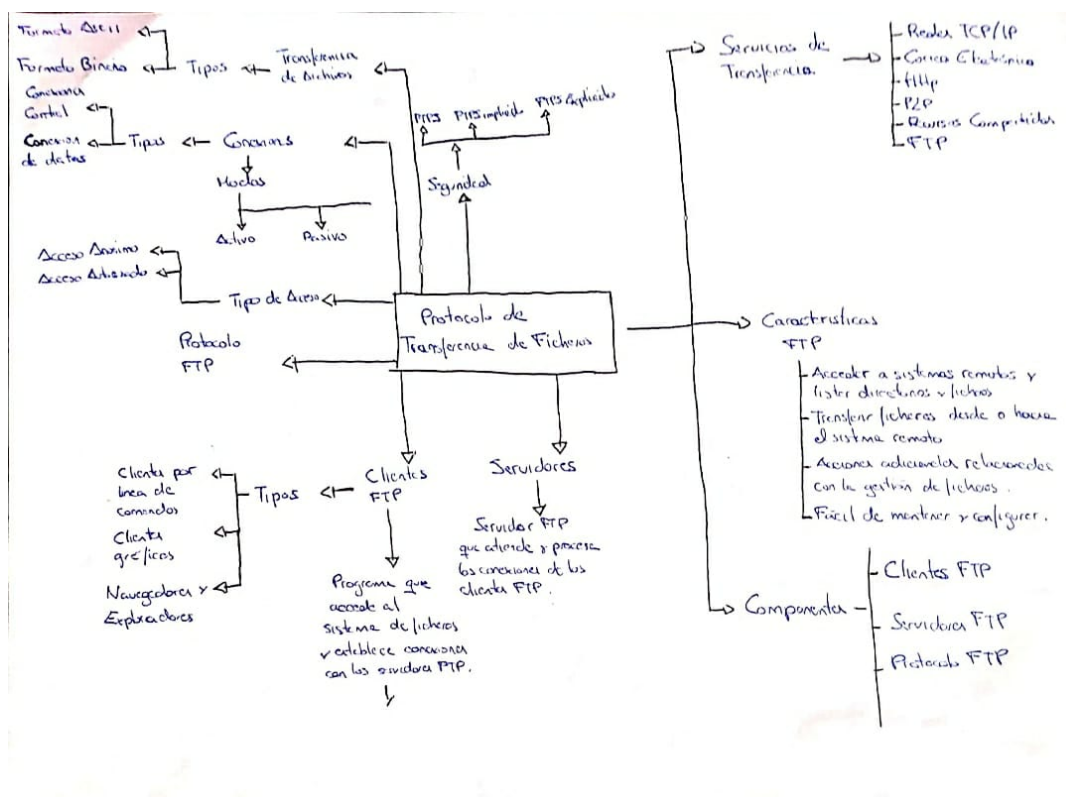 Formato Ascii
Formato Binario
Tipos
Transferencia
de Archivos
Conexiones
Control
Conexion
de datos
Tipos
Conexiones
Modos
Activo
Pasivo
FTPS
FTPS implicito
FTPS Explicito
Seguridad
Acceso Anonimo
Acceso Autorizado
Tipo de Acceso
Protocolo
FTP
Protocolo de
Transferencia de Ficheros
Clientes
FTP
Tipos
Cliente por
linea de
comandos
Cliente
gráficos
Navegadores y
Exploradores
Programa que
accede al
sistema de ficheros
y establece conexiones
con los servidores FTP.
Servidores
Servidor FTP
que atiende y procesa
las conexiones de los
clientes FTP.
Servicios de
Transferencia.
Redes TCP/IP
Correo Electrónico
Http
P2P
Recursos Compartidos
FTP
Caracteristicas
FTP
Acceder a sistemas remotos y
listar directorios y ficheros
Transferir ficheros desde o hacia
el sistema remoto
Acciones adicionales relacionadas
con la gestión de ficheros.
Fácil de mantener y configurar.
Componentes
Clientes FTP
Servidores FTP
Protocolo FTP